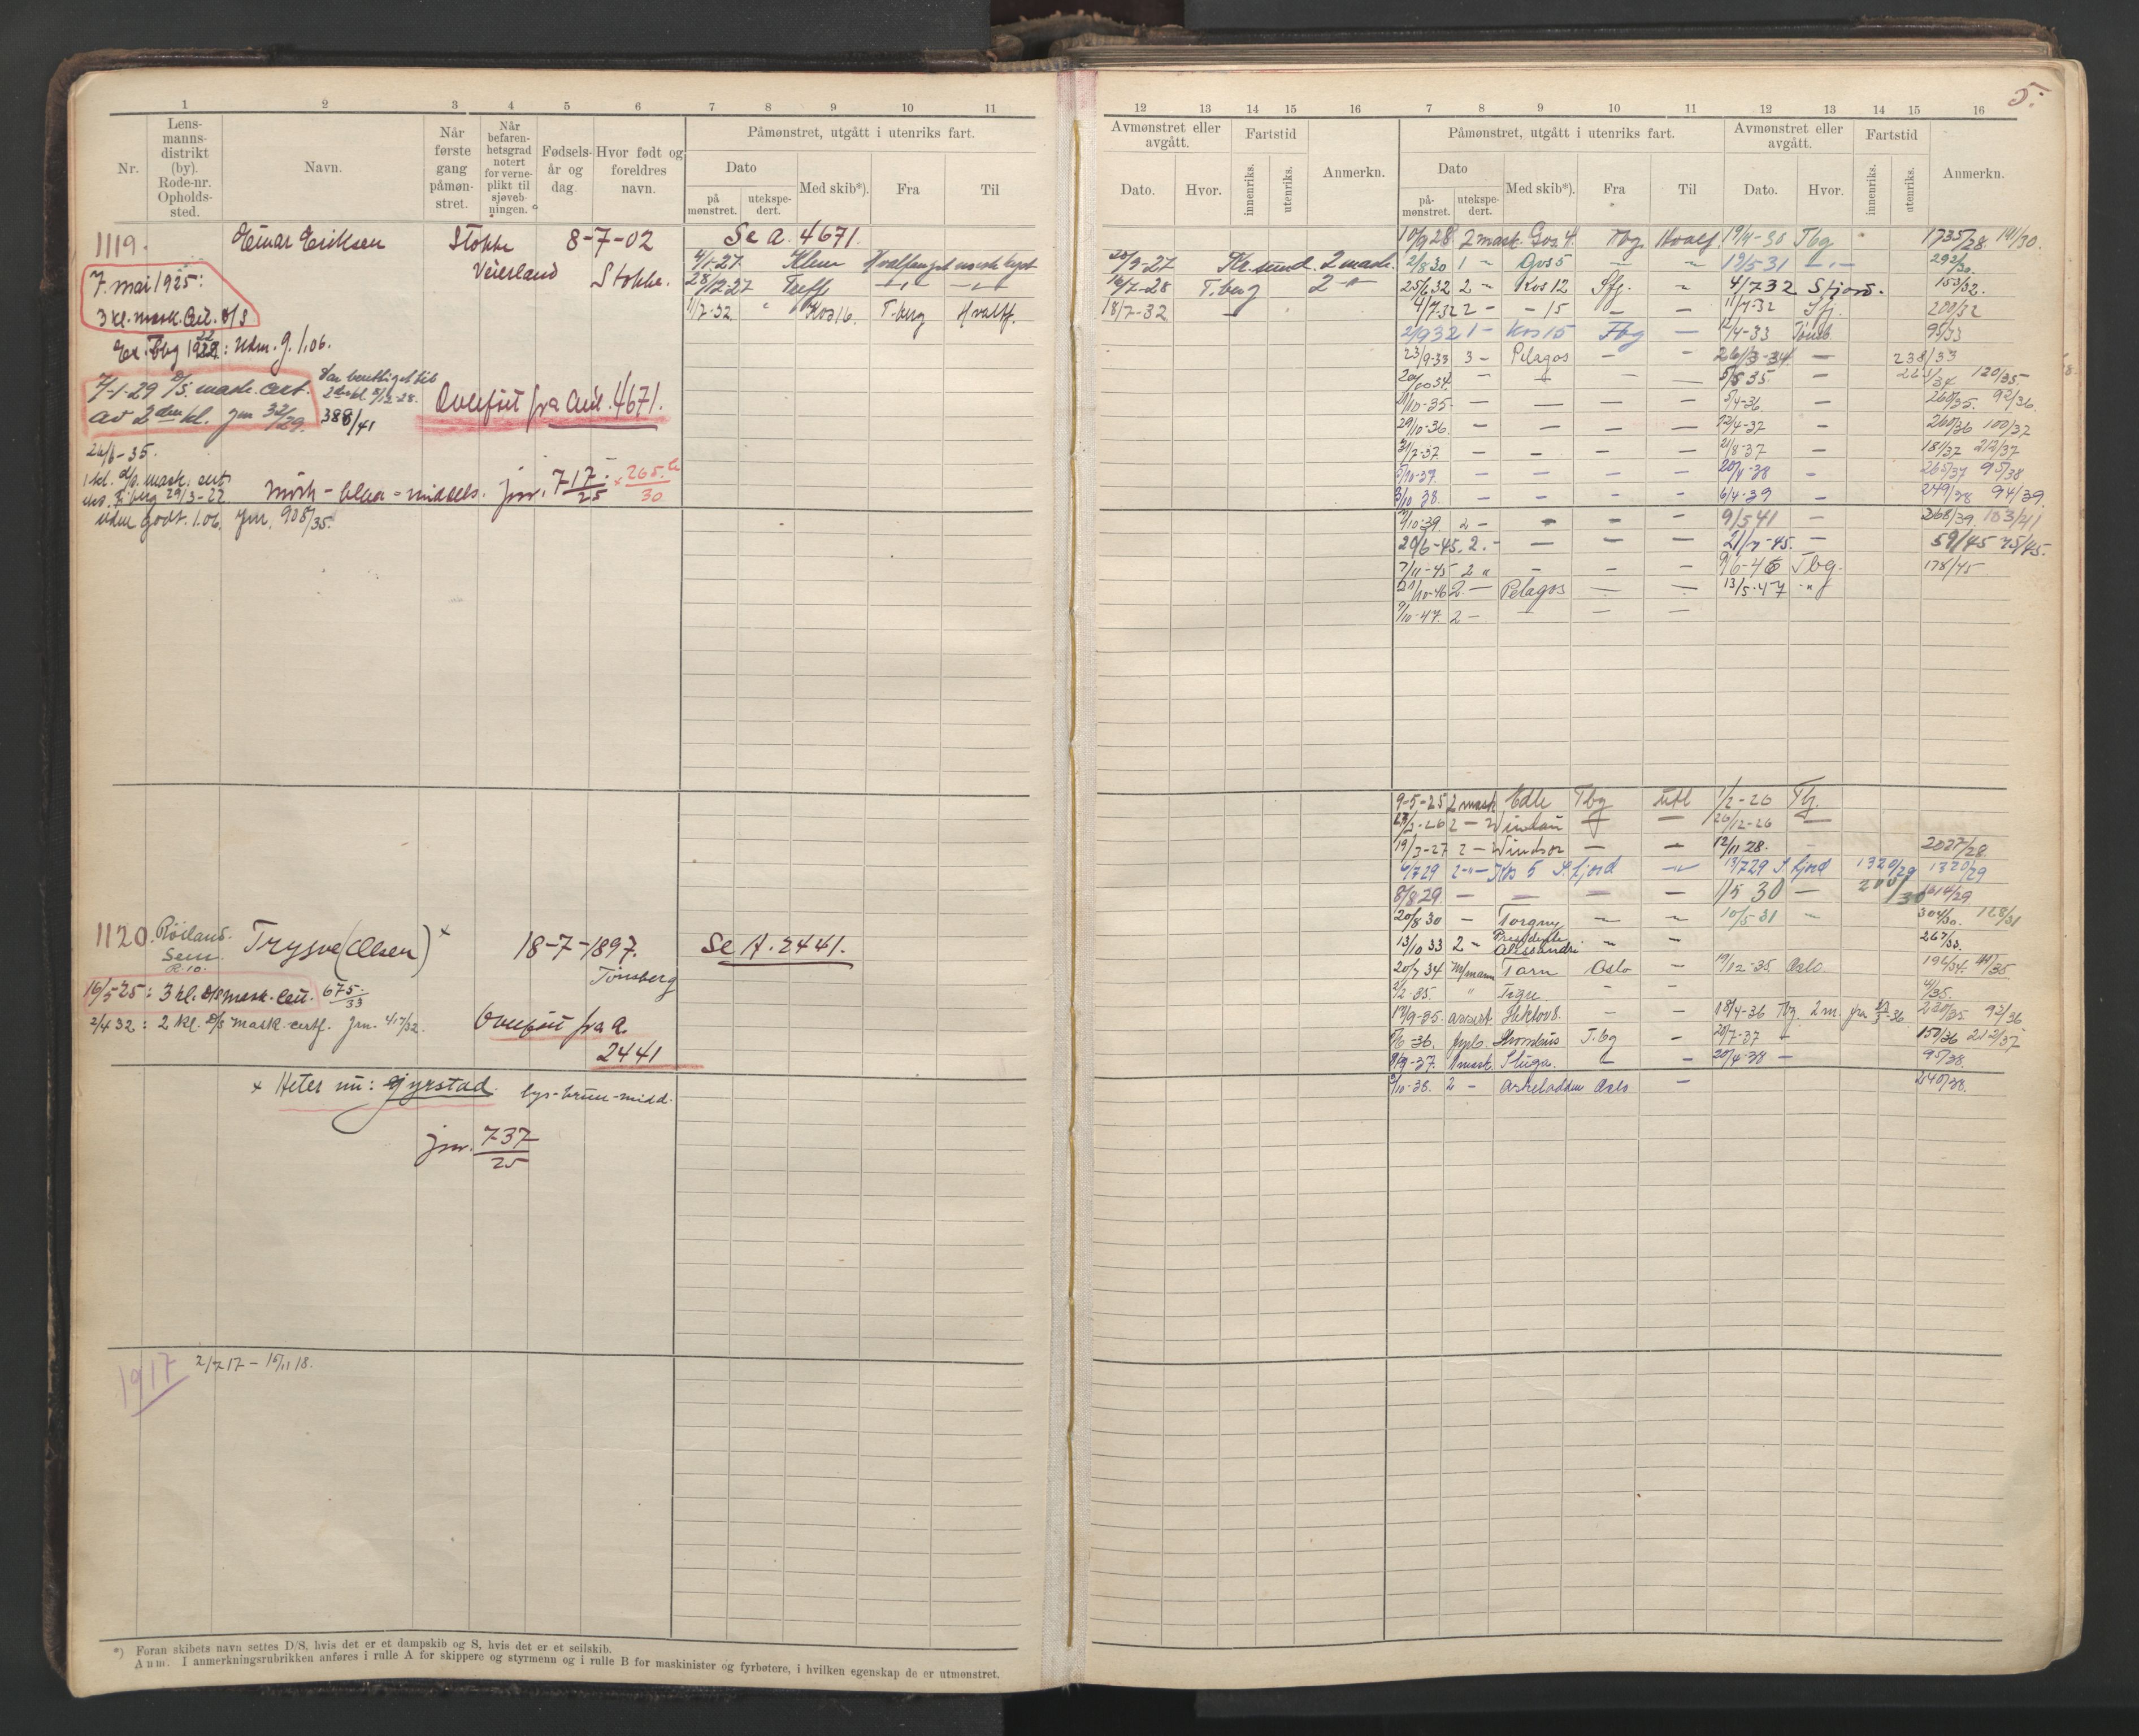 5.
1 2 3 4 5 6 7 8 9 10 11
Nr.
Lens-
manns-
distrikt
(by).
Rode-nr.
Opholds-
sted.
Navn.
Når
første
gang
påmøn-
stret.
Når
befaren-
hetsgrad
notert
for verne-
plikt til
sjøveb-
ningen.
Fødsels-
år og
dag.
Hvor født og
foreldres
navn.
Påmønstret, utgått i utenriks fart.
Dato
på
mønstret.
utekspe-
dert.
Med skib*).
Fra
Til
1119.
Einar Eriksen
Stokke
Veierland
8-7-02
Stokke.
Se A. 4671.
4/1-27. Klem Hvalfangst norsk kyst
28/12-27 Treff -"- -"-
1/7-32. " Kos 16. T.berg Hvalff.
7. mai 1925:
3 kl. mask. Cert. D/S
Ex. Tbg 1922: Udm. g. 1.06.
7-1-29 D/S. mask. cert.
av 2den kl. jnr 32/29.
388/41
Overført fra Rul. 4671.
26/6-35.
1 kl. d/s. mask. cert.
eks. T.berg 29/3-27
Udm godt. 1.06. jnr. 908/35.
mørk - blaa - middels. jnr. 717/25 × 265/30
1120.
Røsland.
Sem.
R. 10.
Trygve (Olsen) ×
18-7-1897.
Tønsberg
Se A. 2441.
16/5 25: 3 kl. D/S mask. Cert. 675/33
2/4 32: 2 kl. D/S mask. certf. Jnr. 417/32.
Overført fra A.
2441
× Heter nu: Gjyrstad.
lys - brun - midd.
jnr. 737/25
1917 2/7 17 - 15/11 18.
*) Foran skibets navn settes D/S, hvis det er et dampskib og S, hvis det er et seilskib.
Anm. I anmerkningsrubrikken anføres i rulle A for skippere og styrmenn og i rulle B for maskinister og fyrbøtere, i hvilken egenskap de er utmønstret.
12 13 14 15 16 7 8 9 10 11 12 13 14 15 16
Avmønstret eller
avgått.
Dato.
Hvor.
Fartstid
innenriks.
utenriks.
Anmerkn.
Påmønstret, utgått i utenriks fart.
Dato
på-
mønstret.
utekspe-
dert.
Med skib*).
Fra
Til
Avmønstret eller
avgått.
Dato.
Hvor.
Fartstid
innenriks.
utenriks.
Anmerkn.
20/9-27 Kr.sund. 2 mask.
16/7-28 T.berg 2 -"-
18/7-32. -
10/9 28 2 mask. Kos 4. Tbg. Hvalf. 19/4-30 Tbg 1735/28 141/30.
2/8 30 1 - Kos 5 - - 12/5 31 -"- 292/30.
25/6 32 2 - Kos 12 Sfj. - 4/7 32 Sfjord. 153/32.
4/7-32 2 - - 15 - - 11/7-32 Sfj. 200/32
2/9 32 1 - Kos 15 Tbg - 12/4-33 Tønsb. 95/33
23/9-33 3 - Pelagos - - 26/3-34. - 238/33
- - - - 5/5 35. - 120/35.
21/10-35 - - - - 5/4-36. - 260/35. 92/36.
29/10-36. - - - - 12/4-37 - 260/36 100/37
31/7-37 - - - - 21/8-37 - 181/37 212/37
5/10-37. - - - - 20/4-38 - 265/37 95/38.
3/10 38. - - - - 6/4-39 - 249/38 94/39.
9/10-39. 2 - - - - 9/5 41 - 268/39. 183/41
20/6-45. 2. - - - - 21/7-45. - 59/45 75/45.
7/11-45 2 " - - - 9/6-46 Tbg. 178/45
21/10-46 2. - Pelagos - - 13/5-47 -"-
9/10-47. 2 - - - -
9-5-25 2 mask Edle Tbg utl 1/2-26 Tbg.
23/2-26 2 - - - 20/12-26 -
19/3-27 2 - Windsor - - 12/11 28. 2027/28.
6/7 29 2 -"- Kos 5 S.fjord -"- 13/7 29 S.fjord 1320/29 1320/29
8/8 29. - - - - 1/5 30 - 200/30 1614/29
20/8 30 - Torgny - - 10/5 31 - 304/30. 168/31
13/10 33 2 - Presidente Alessandri - - 267/33.
20/7 34 Tarn Oslo - 19/12-35. Oslo. 196/34. 441/35
2/2-35. " Tigre - - 4/35.
12/9-35. assist. Hektor 8. - - 18/4-36 Tbg. 2 m. fra 230/35 92/36
5/6-36. fyrb. Strombus T.bg - 20/7-37 - 150/36 212/37
9-37. mask. Sluga. - - 20/4-38 - 95/38.
3/10-38. 2 - Askeladden Oslo - 240/38.